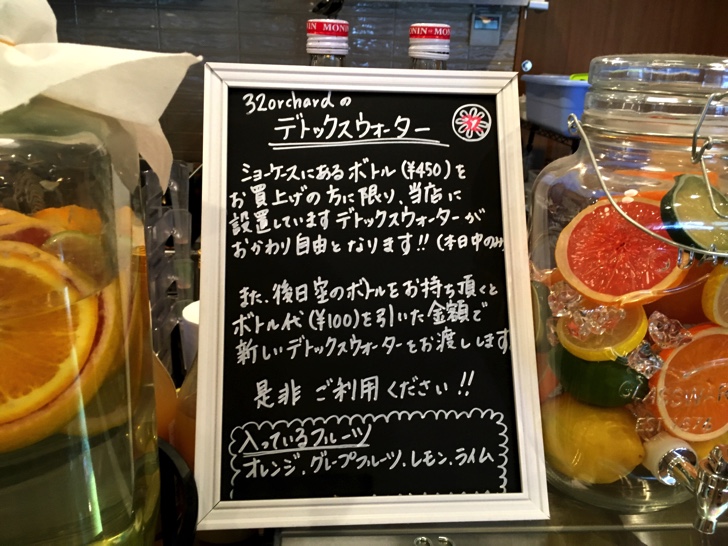 MONIN MONIN
MONIN MONIN
32orchardの
デトックスウォーター
ショーケースにあるボトル(¥450)を
お買上げの方に限り、当店に
設置していますデトックスウォーターが
おかわり自由となります!!(本日中のみ
また、後日空のボトルをお持ち頂くと
ボトル代(¥100)を引いた金額で
新しいデトックスウォーターをお渡しします
是非ご利用ください!!
入っているフルーツ
オレンジ、グレープフルーツ、レモン、ライム
GLASSWARE